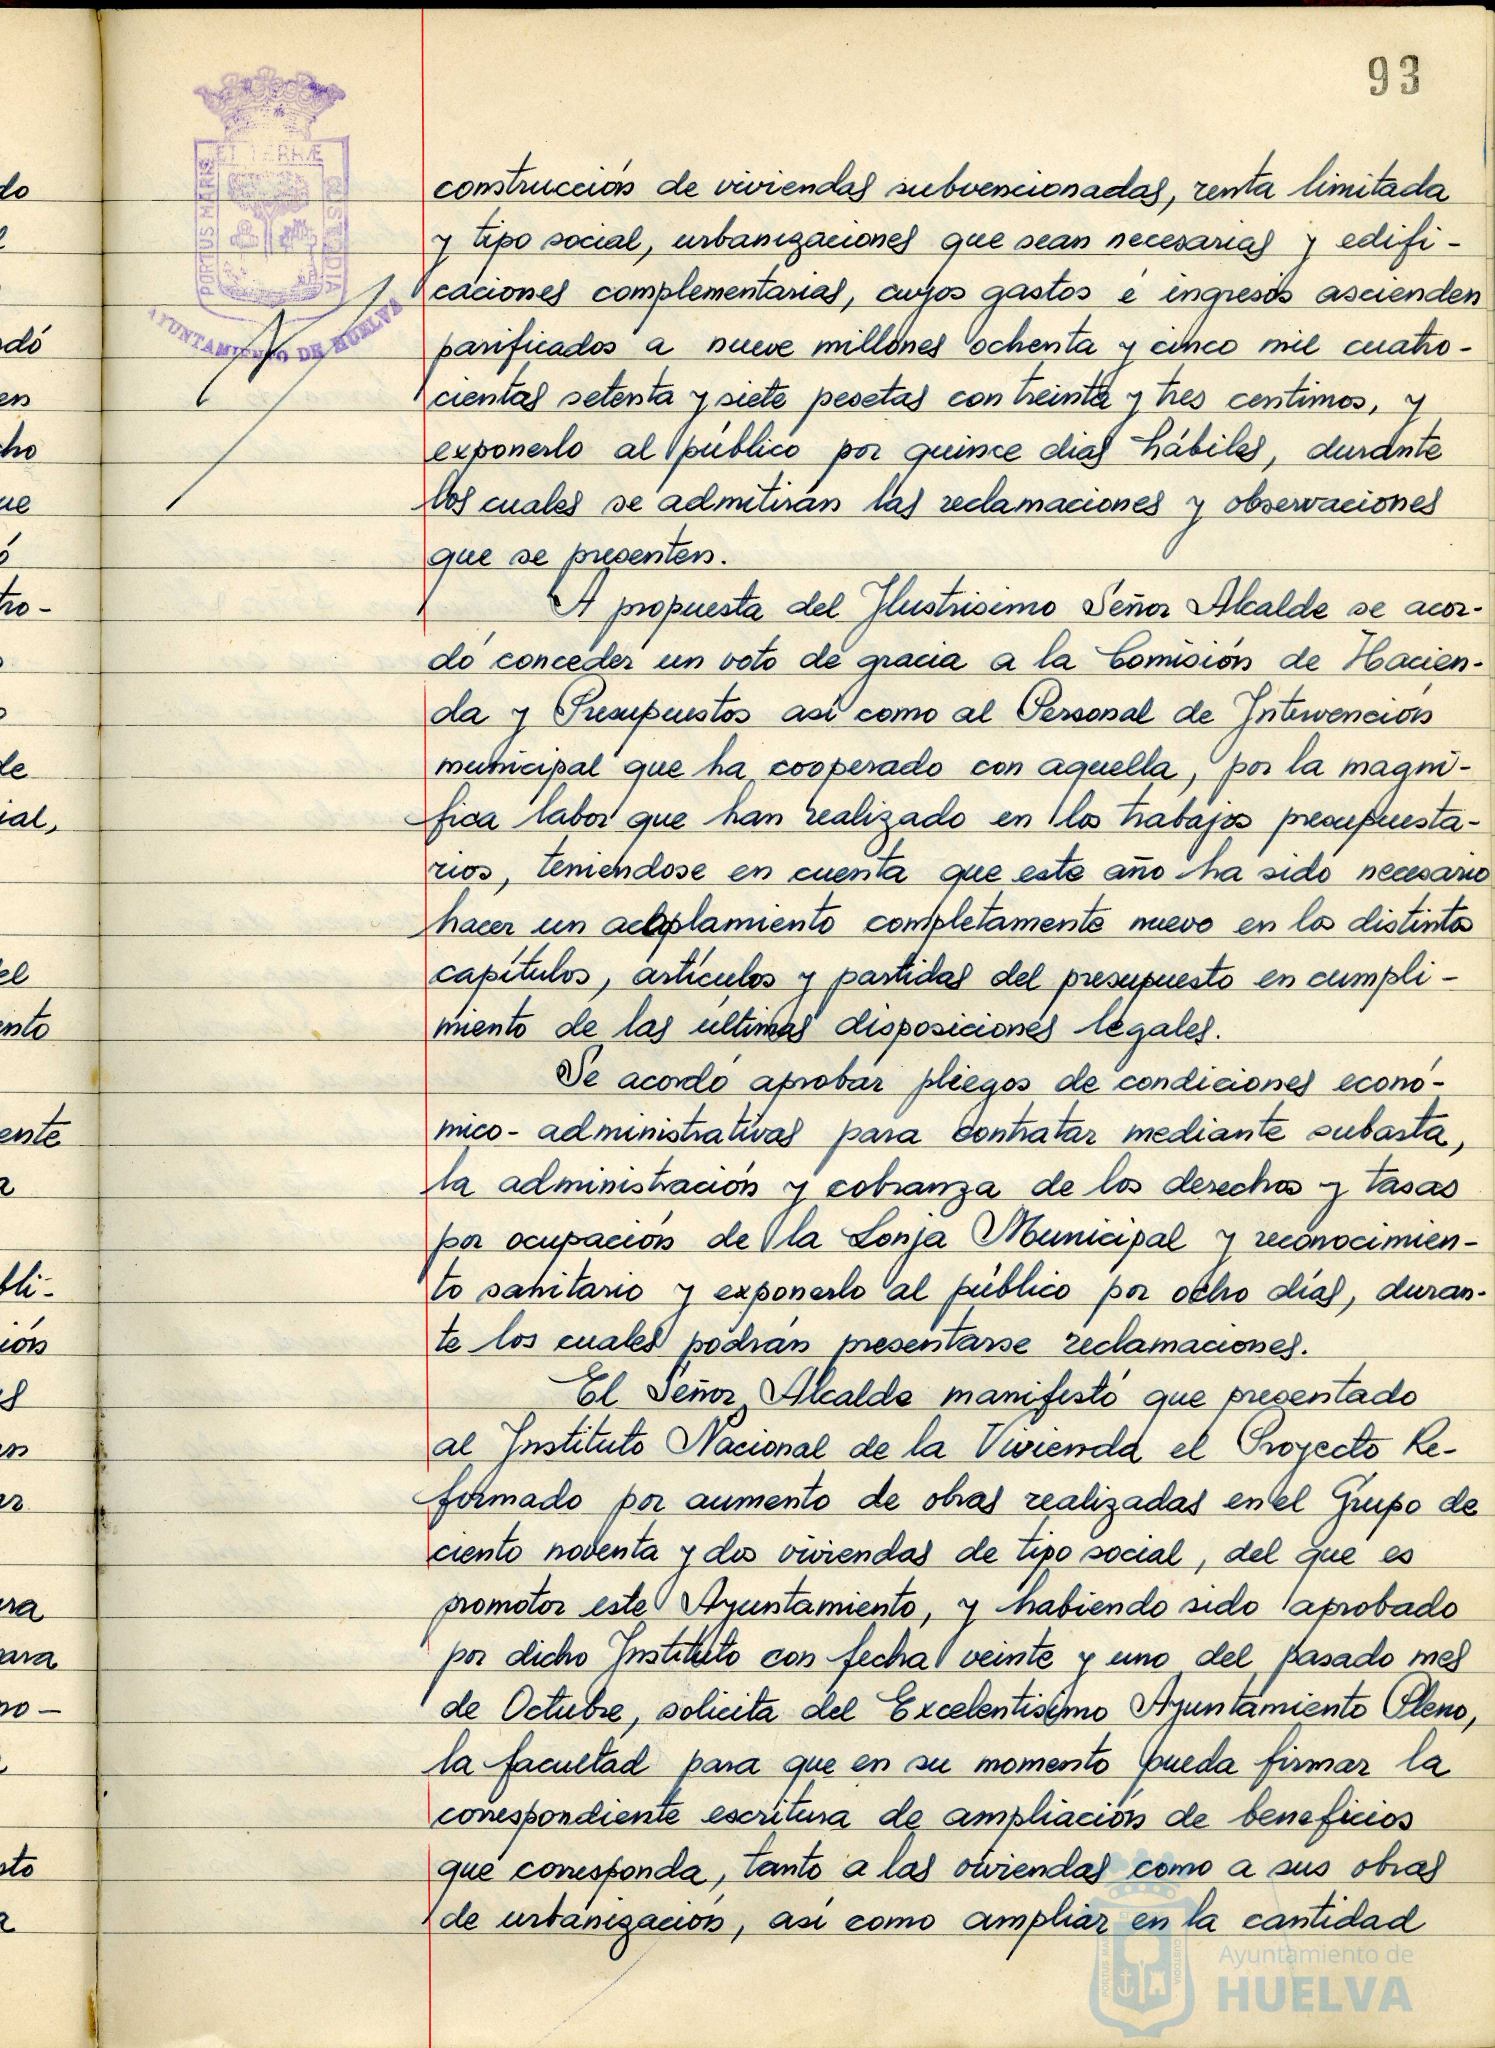 93
ET TERRÆ
PORTUS MARIS
CUSTODIA
AYUNTAMIENTO DE HUELVA
construcción de viviendas subvencionadas, renta limitada
y tipo social, urbanizaciones que sean necesarias y edifi-
caciones complementarias, cuyos gastos é ingresos ascienden
parificados a nueve millones ochenta y cinco mil cuatro-
cientas setenta y siete pesetas con treinta y tres centimos, y
exponerlo al público por quince dias hábiles, durante
los cuales se admitirán las reclamaciones y observaciones
que se presenten.
A propuesta del Ilustrisimo Señor Alcalde se acor-
dó conceder un voto de gracia a la Comisión de Hacien-
da y Presupuestos así como al Personal de Intervención
municipal que ha cooperado con aquella, por la magní-
fica labor que han realizado en los trabajos presupuesta-
rios, teniendose en cuenta que este año ha sido necesario
hacer un acoplamiento completamente nuevo en los distintos
capítulos, artículos y partidas del presupuesto en cumpli-
miento de las últimas disposiciones legales.
Se acordó aprobar pliegos de condiciones econó-
mico-administrativas para contratar mediante subasta,
la administración y cobranza de los derechos y tasas
por ocupación de la Lonja Municipal y reconocimien-
to sanitario y exponerlo al público por ocho días, duran-
te los cuales podrán presentarse reclamaciones.
El Señor Alcalde manifestó que presentado
al Instituto Nacional de la Vivienda el Proyecto Re-
formado por aumento de obras realizadas en el Grupo de
ciento noventa y dos viviendas de tipo social, del que es
promotor este Ayuntamiento, y habiendo sido aprobado
por dicho Instituto con fecha veinte y uno del pasado mes
de Octubre, solicita del Excelentisimo Ayuntamiento Pleno,
la facultad para que en su momento pueda firmar la
correspondiente escritura de ampliación de beneficios
que corresponda, tanto a las viviendas como a sus obras
de urbanización, así como ampliar en la cantidad
Ayuntamiento de
HUELVA